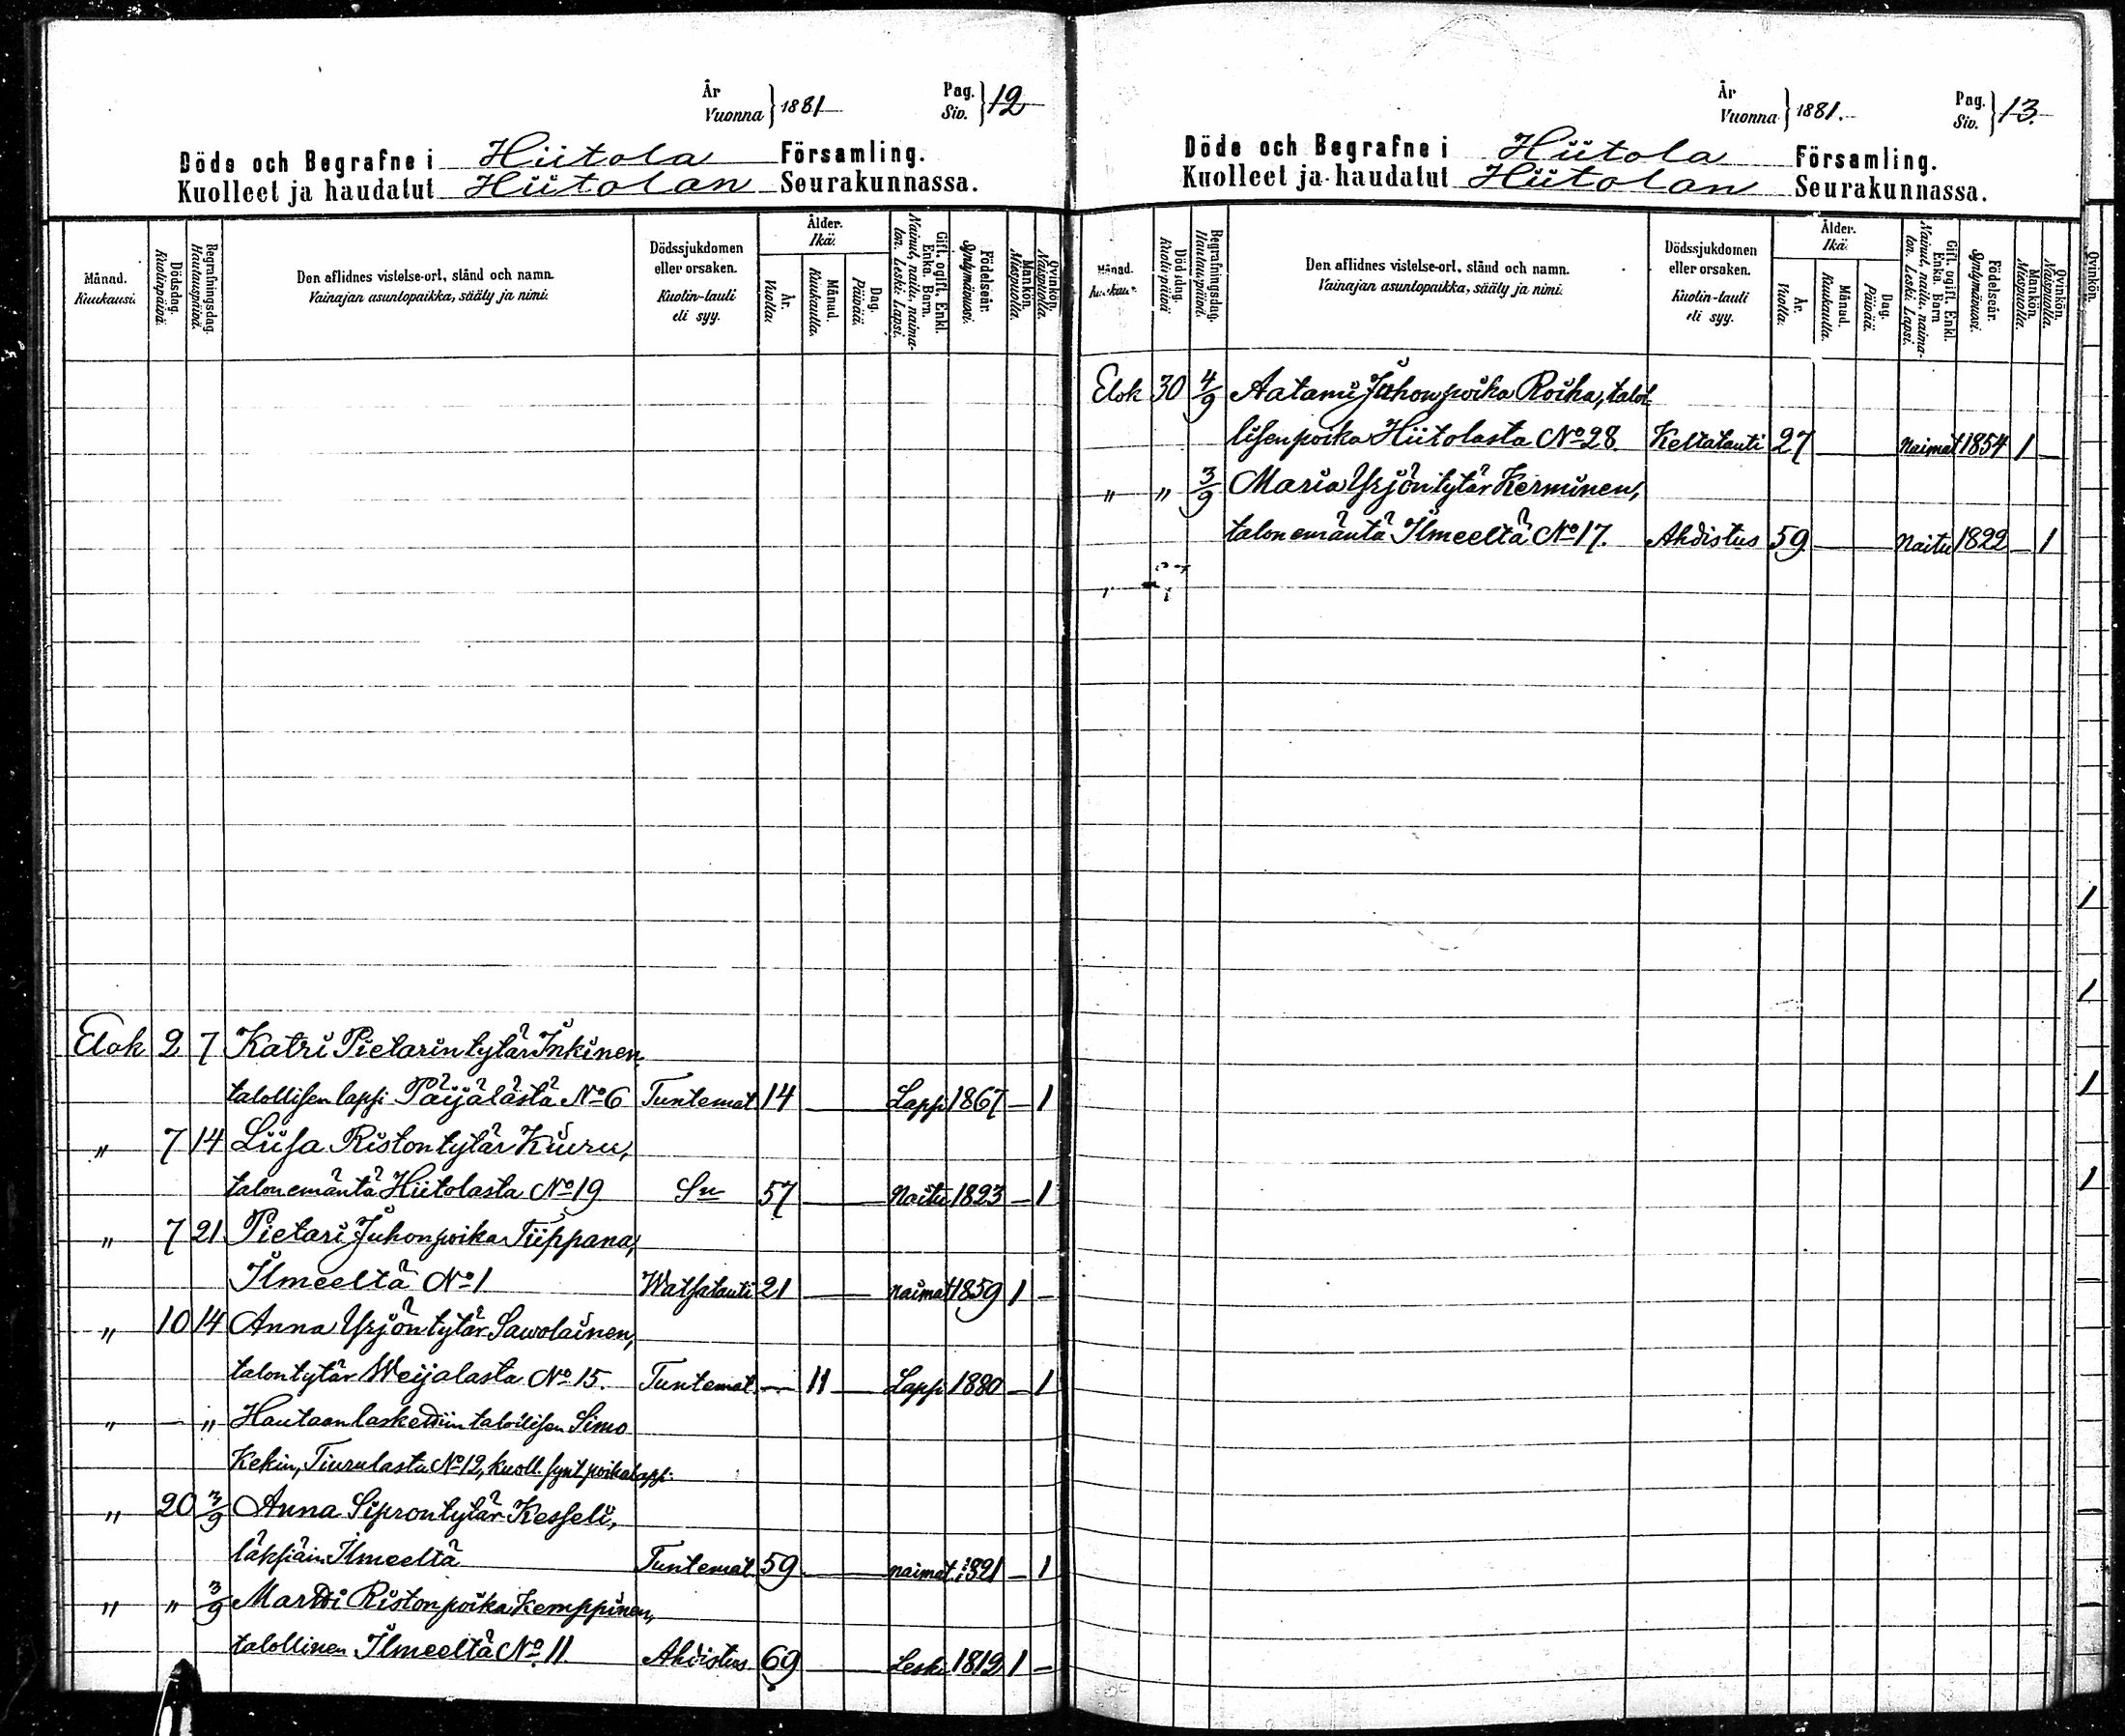 År
Vuonna } 1881
Pag.
Siv. } 12
Döde och Begrafne i Hiitola Församling.
Kuolleet ja haudatut Hiitolan Seurakunnassa.
Månad. Kuukausi.
Dödsdag. Kuolinpäivä.
Begrafningsdag. Hautauspäivä.
Den aflidnes vistelse-ort, stånd och namn.
Vainajan asuntopaikka, sääty ja nimi.
Dödssjukdomen eller orsaken.
Kuolin-tauti eli syy.
Ålder. Ikä.
År. Vuotta.
Månad. Kuukautta.
Dag. Päivää.
Gift, ogift. Enkl. Enka. Barn.
Nainut, naitu, naimaton. Leski. Lapsi.
Födelseår. Syntymävuosi.
Mankön. Miespuolia.
Qvinkön. Naispuolia.
Elok 2 7 Katri Pietarintytär Inkinen
talollisen lapsi Päijälästä No 6 Tuntemat 14 — Lapsi 1867 — 1
" 7 14 Liisa Ristontytär Kiuru,
talon emäntä Hiitolasta No 19 Sn 57 — Naitu 1823 — 1
" 7 21 Pietari Juhonpoika Tiippana,
Ilmeeltä No 1 Watsatauti 21 — naimat 1859 1 —
" 10 14 Anna Yrjöntytär Sawolainen,
talontytär Weijalasta No 15. Tuntemat — 11 — Lapsi 1880 — 1
" — " Hautaan laskettiin talollisen Simo
Kekin, Tiurulasta No 12, kuoll. synt poikalapsi.
" 20 3/9 Anna Siprontytär Kesseli,
läksiäin Ilmeeltä Tuntemat 59 — naimat. 1821 — 1
" " 3/9 Martti Ristonpoika Kemppinen,
talollinen Ilmeeltä No 11 Ahdistus 69 — Leski 1812 1 —
År
Vuonna } 1881.
Pag.
Siv. } 13.
Döde och Begrafne i Hiitola Församling.
Kuolleet ja haudatut Hiitolan Seurakunnassa.
Månad.
Dödsdag. Kuolinpäivä
Begrafningsdag. Hautauspäivä.
Den aflidnes vistelse-ort, stånd och namn.
Vainajan asuntopaikka, sääty ja nimi.
Dödssjukdomen eller orsaken.
Kuolin-tauti eli syy.
Ålder. Ikä.
År. Vuotta.
Månad. Kuukautta.
Dag. Päivää.
Gift, ogift. Enkl. Enka. Barn
Nainut, naitu, naimaton. Leski. Lapsi.
Födelseår. Syntymävuosi.
Mankön. Miespuolia.
Qvinkön. Naispuolia.
Qvinkön.
Elok 30 4/9 Aatami Juhonpoika Roiha, talol
lisen poika Hiitolasta No 28. Keltatauti 27 — Naimat 1854 1 —
" " 3/9 Maria Yrjöntytär Kerminen,
talon emäntä Ilmeeltä No 17. Ahdistus 59 — Naitu 1822 — 1
1
1
1
1